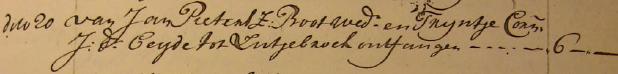 dito 20 van Jan Pieters Z: Boot wedr: en Trijntje Corn:
J: dr: Oeyde tot Lutjebroek ontfangen - - - - - . 6 - . -